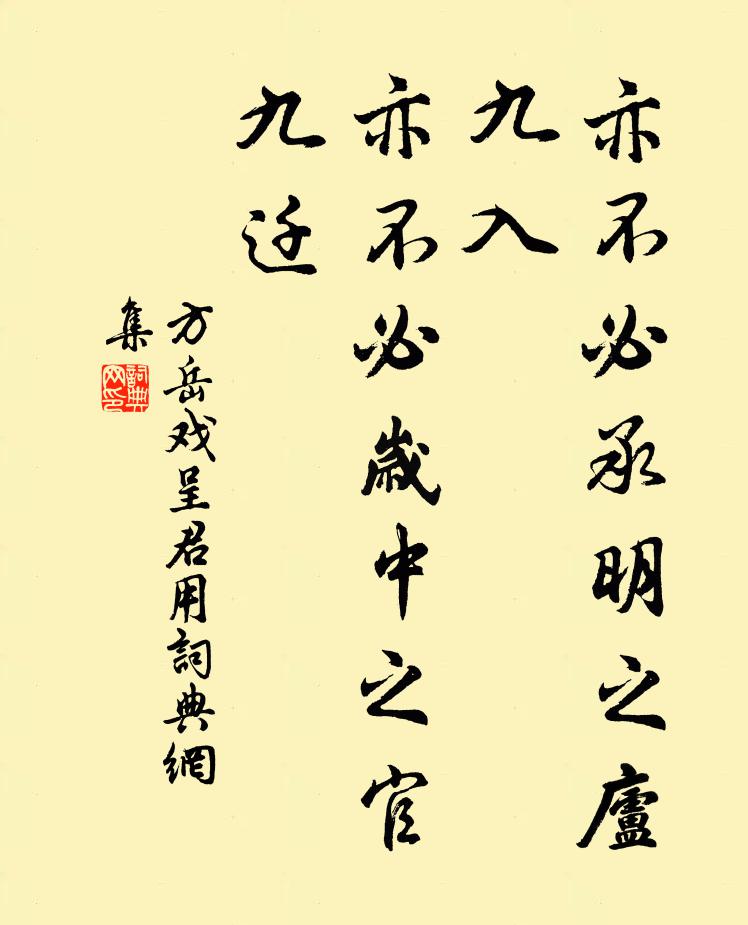 亦不必承明之廬
九入
亦不必歲中之官
九迁
方岳戏呈君用詞典網
集
詞典
网印